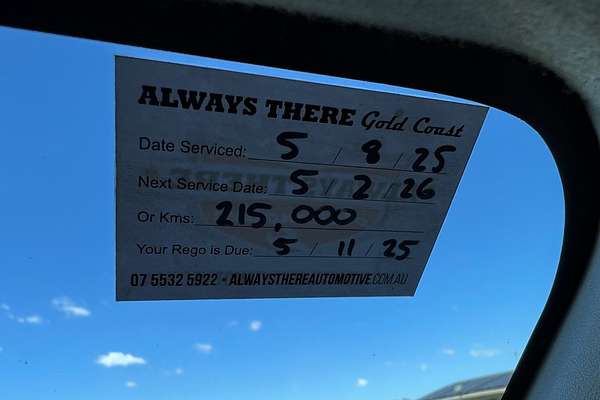 ALWAYS THERE Gold Coast
Date Serviced: 5 / 8 / 25
Next Service Date: 5 / 2 / 26
Or Kms: 215,000
Your Rego is Due: 5 / 11 / 25
07 5532 5922 • ALWAYSTHEREAUTOMOTIVE.COM.AU